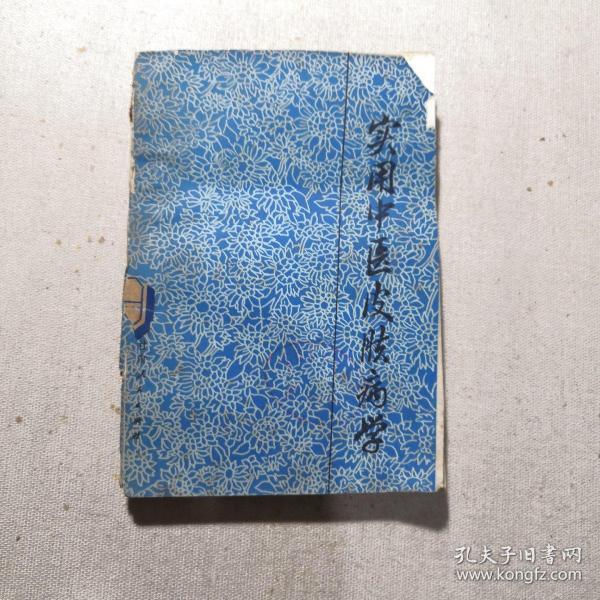 实用中医皮肤病学
孔夫子旧書网
www.kongfz.com